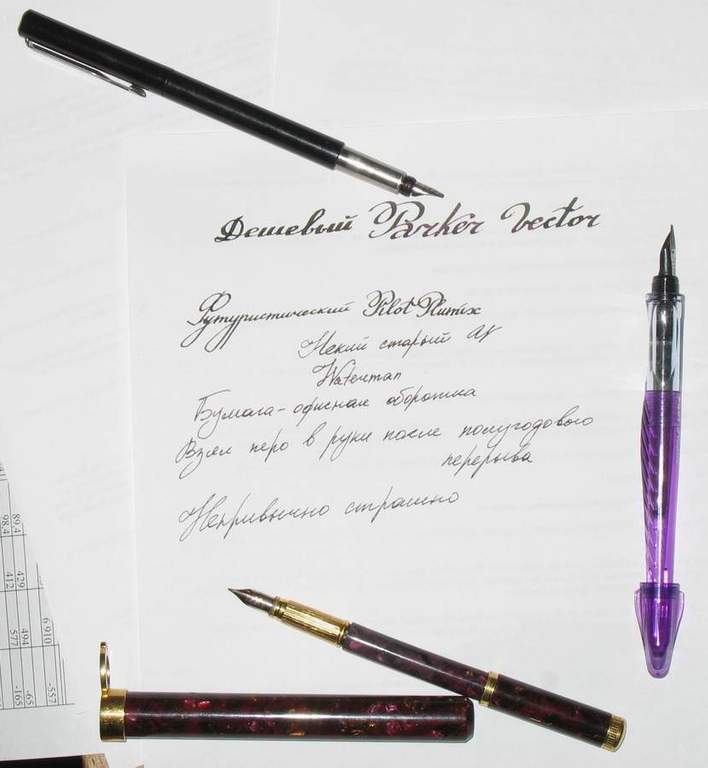 Дешевый Parker Vector
Футуристический Pilot Plumix
Некий старый
Waterman
Бумага - офисная оборотка
Взял перо в руки после полугодового
перерыва
Непривычно страшно
89.4
98.4
429
412
6 910
494
577
-557
-65
-165